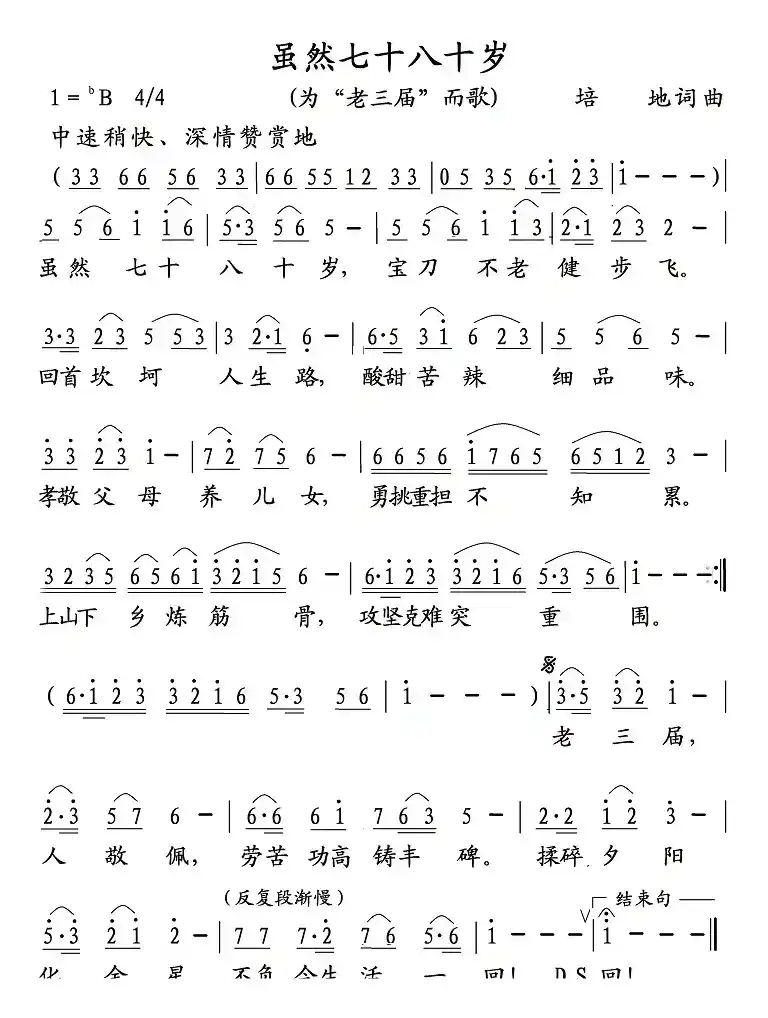 虽然七十八十岁
1 = ♭B 4/4 (为“老三届”而歌) 培 地词曲
中速稍快、深情赞赏地
( 3 3 6 6 5 6 3 3 | 6 6 5 5 1 2 3 3 | 0 5 3 5 6·i 2 3 | i - - - ) |
5 5 6 i i 6 | 5·3 5 6 5 - | 5 5 6 i i 3 | 2·1 2 3 2 - |
虽然 七十 八 十 岁, 宝刀 不老 健 步 飞。
3·3 2 3 5 5 3 | 3 2·1 6 - | 6·5 3 i 6 2 3 | 5 5 6 5 - |
回首坎 坷 人生 路, 酸甜 苦 辣 细品 味。
3 3 2 3 i - | 7 2 7 5 6 - | 6 6 5 6 i 7 6 5 6 5 1 2 3 - |
孝敬 父 母 养 儿 女, 勇挑重担 不 知 累。
3 2 3 5 6 5 6 i 3 2 i 5 6 - | 6·i 2 3 3 2 i 6 5·3 5 6 | i - - - :‖
上山下 乡 炼 筋 骨, 攻坚克难 突 重 围。
( 6·i 2 3 3 2 i 6 5·3 5 6 | i - - - ) | 3·5 3 2 i - |
老 三 届,
2·3 5 7 6 - | 6·6 6 i 7 6 3 5 - | 2·2 i 2 3 - |
人 敬 佩, 劳苦 功高 铸丰 碑。 揉碎 夕 阳
(反复段渐慢) 结束句
5·3 2 i 2 - | 7 7 7·2 7 6 5·6 | i - - - | i - - - ‖
化 金 星, 不负 今生 活 一 回! D.S 回!